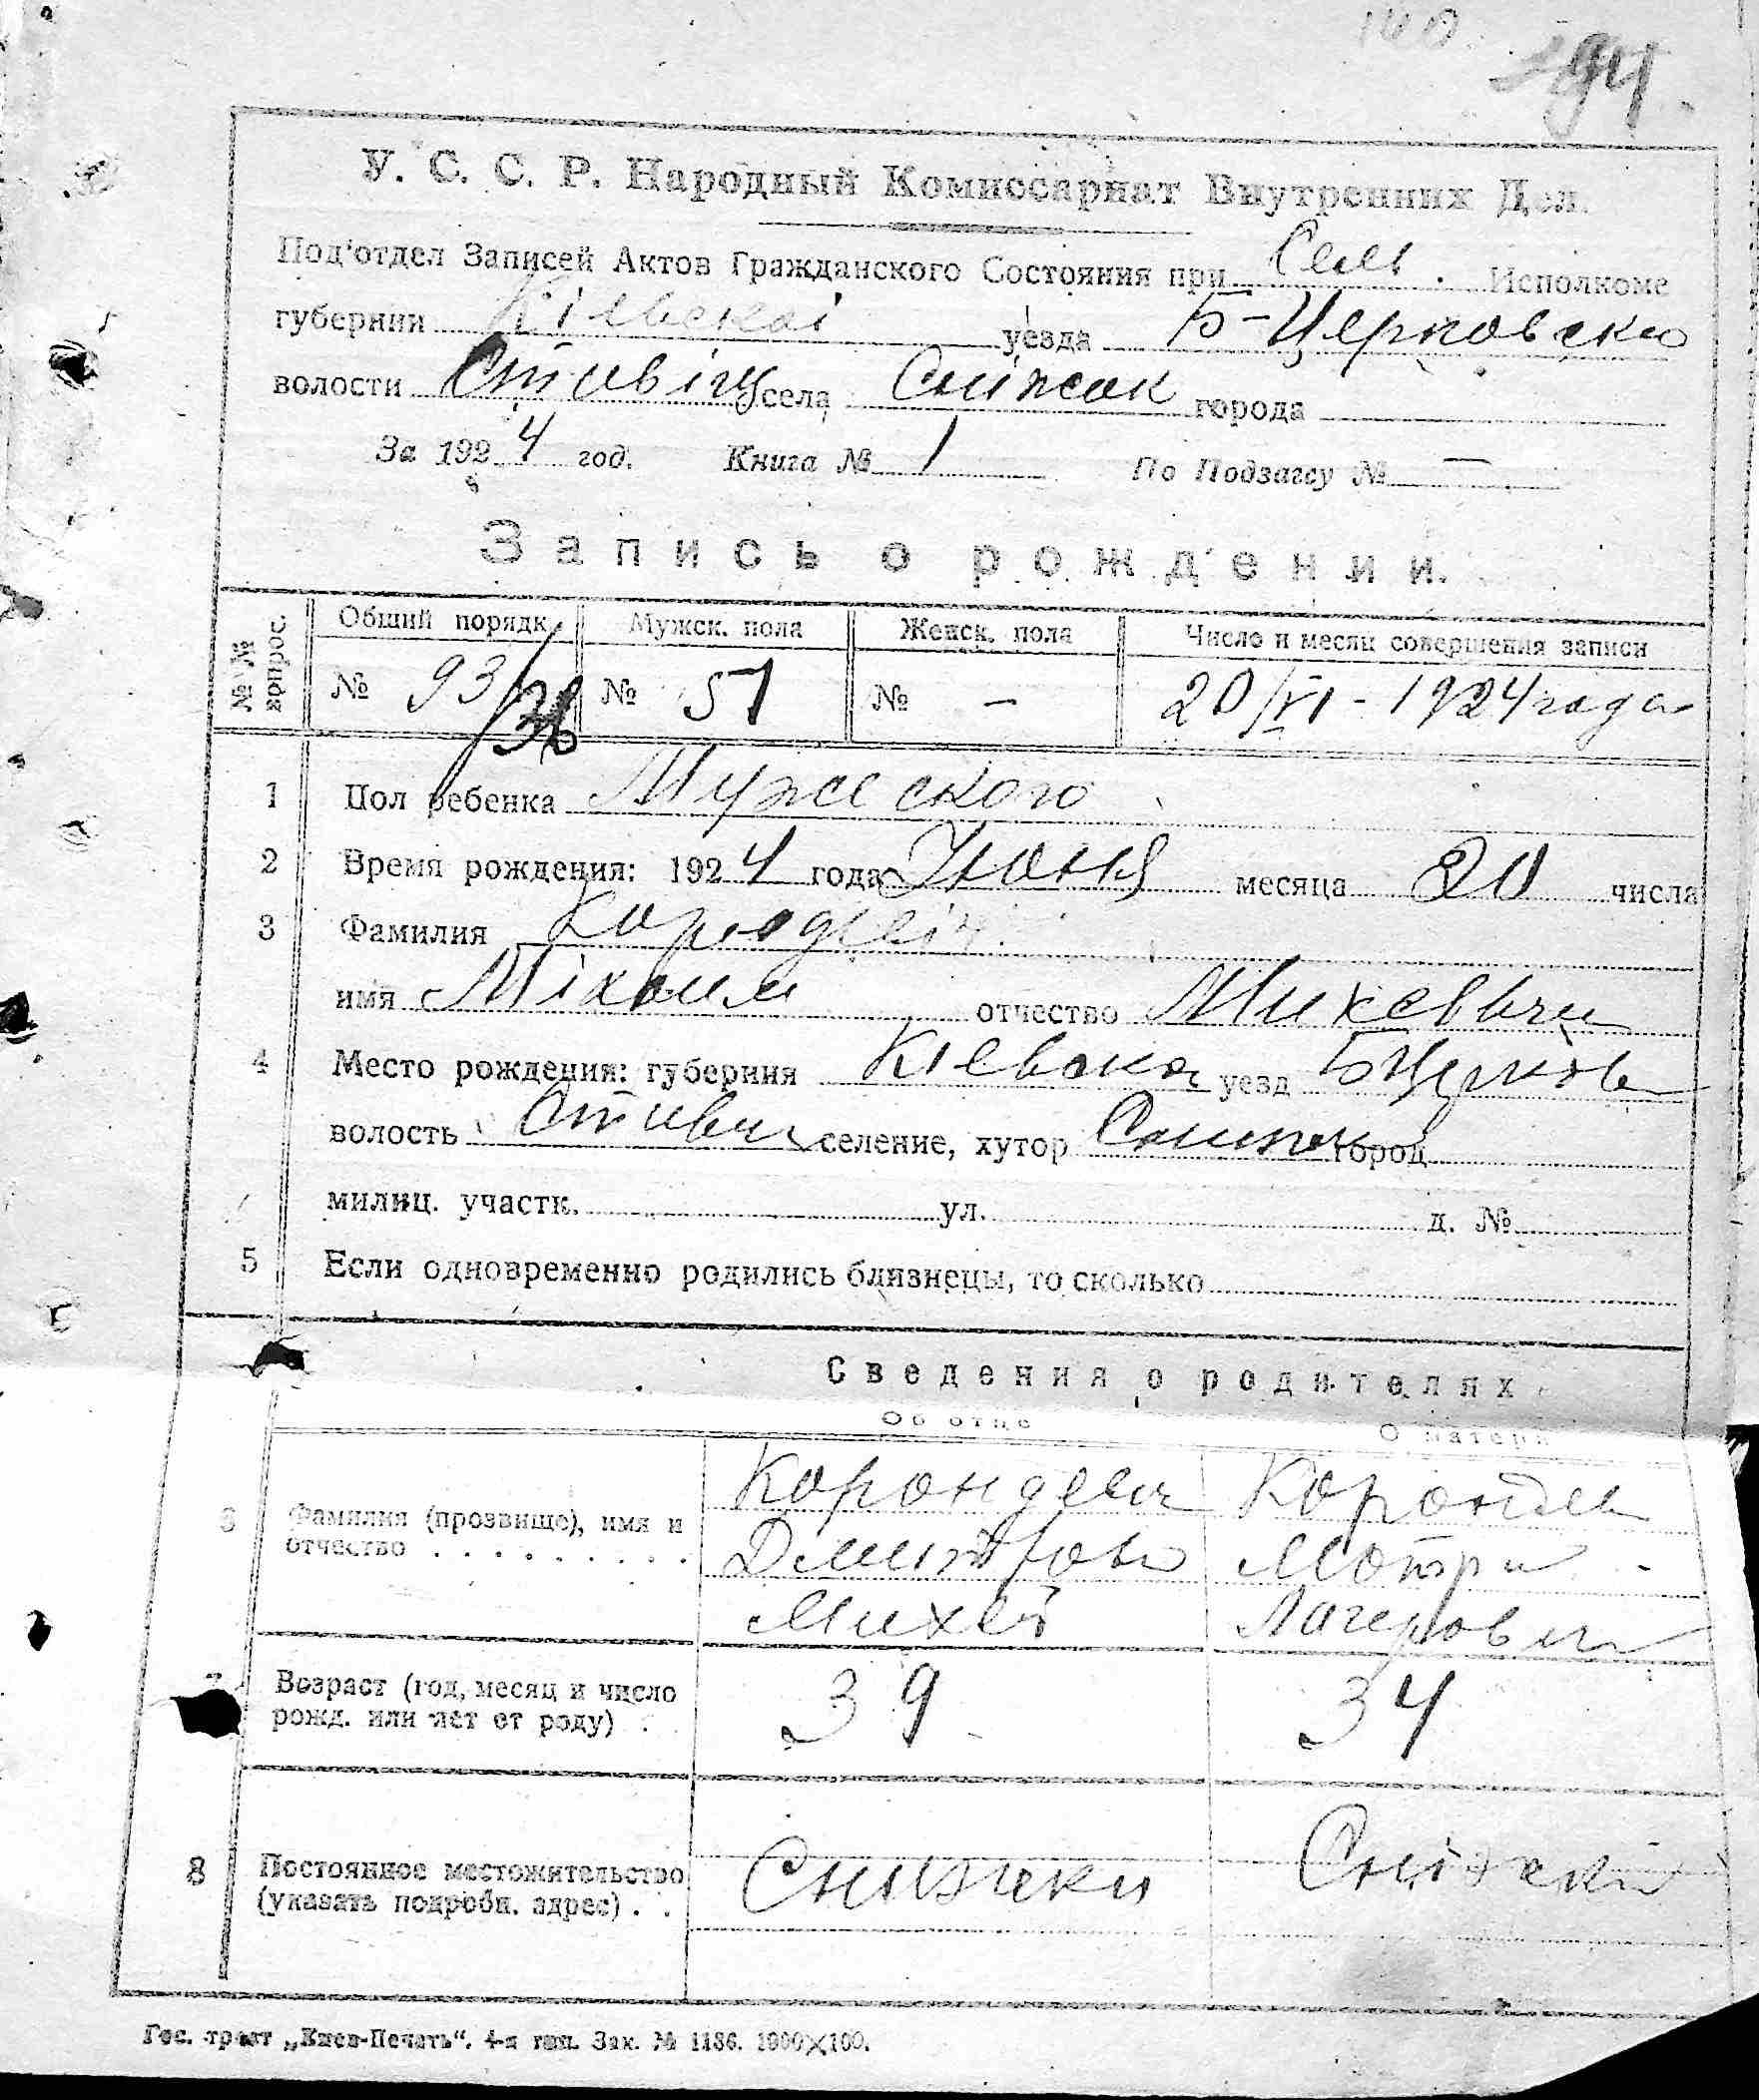 194
У. С. С. Р. Народный Комиссариат Внутренних Дел.
Под'отдел Записей Актов Гражданского Состояния при Сель. Исполкоме
губернии Кіевскаі уезда Б-Церковски
волости села города
За 1924 год. Книга № 1 По Подзагсу № —
Запись о рождении.
№№ вопрос. Общий порядк. Мужск. пола Женск. пола Число и месяц совершения записи
№ 93/36 № 51 № — 20/VI - 1924 года
1 Пол ребенка Мужеского
2 Время рождения: 1924 года Июня месяца 20 числа
3 Фамилия
имя Міхаил отчество Михевич
4 Место рождения: губерния Кіевска уезд БЦерков
волость селение, хутор город
милиц. участк. ул. д. №
5 Если одновременно родились близнецы, то сколько
Сведения о родителях
Об отце О матери
6 Фамилия (прозвище), имя и отчество Корондевич
Мотри
Михей
7 Возраст (год, месяц и число рожд. или лет от роду) 39 34
8 Постоянное местожительство (указать подробн. адрес) Снижеки Сніжки
Гос. трест „Киев-Печать“. 4-я тип. Зак. № 1186. 1900×100.